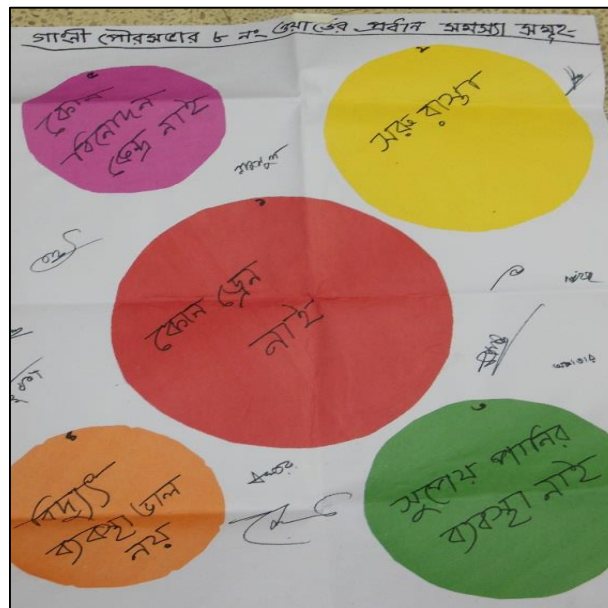 গাংনী পৌরসভার ৮ নং ওয়ার্ডের প্রধান সমস্যা সমূহ-
৫
কোন
বিনোদন
কেন্দ্র নাই
২
সরু রাস্তা
১
কোন ড্রেন
নাই
৪
বিদ্যুৎ
ব্যবস্থা ভাল
নয়
৩
সুপেয় পানির
ব্যবস্থা নাই